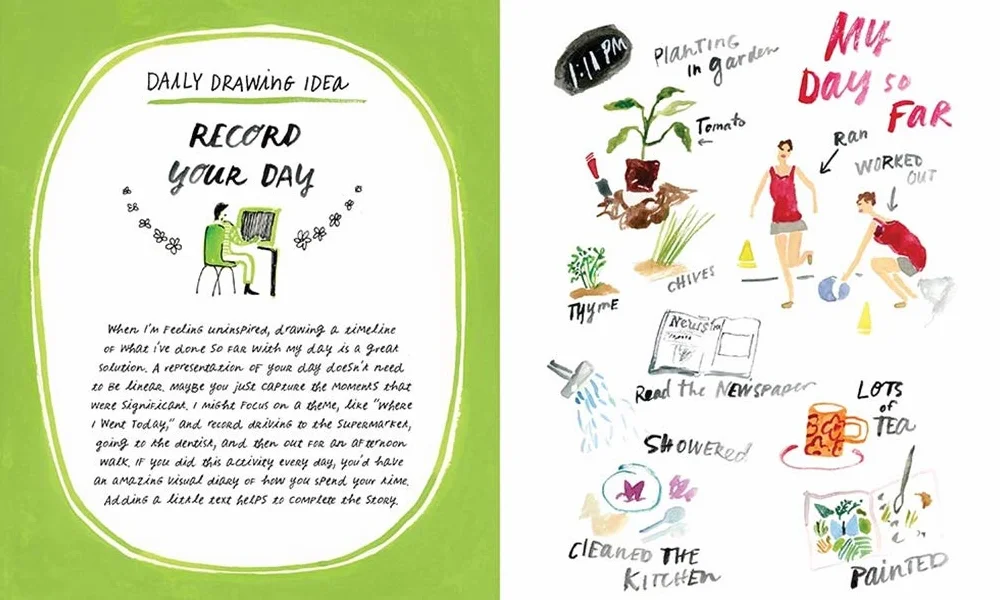 DAILY DRAWING IDEA
RECORD
YOUR DAY
When I'm feeling uninspired, drawing a timeline
of what I've done so far with my day is a great
solution. A representation of your day doesn't need
to be linear. Maybe you just capture the moments that
were significant. I might focus on a theme, like "Where
I Went Today," and record driving to the supermarket,
going to the dentist, and then out for an afternoon
walk. If you did this activity every day, you'd have
an amazing visual diary of how you spend your time.
Adding a little text helps to complete the story.
My
Day so
Far
1:11 PM
Planting
in garden
Tomato
Ran
WORKED
OUT
CHIVES
Thyme
News
Read the Newspaper
LOTS
of
TEA
SHOWERED
Cleaned THE
KITCHEN
PainTED